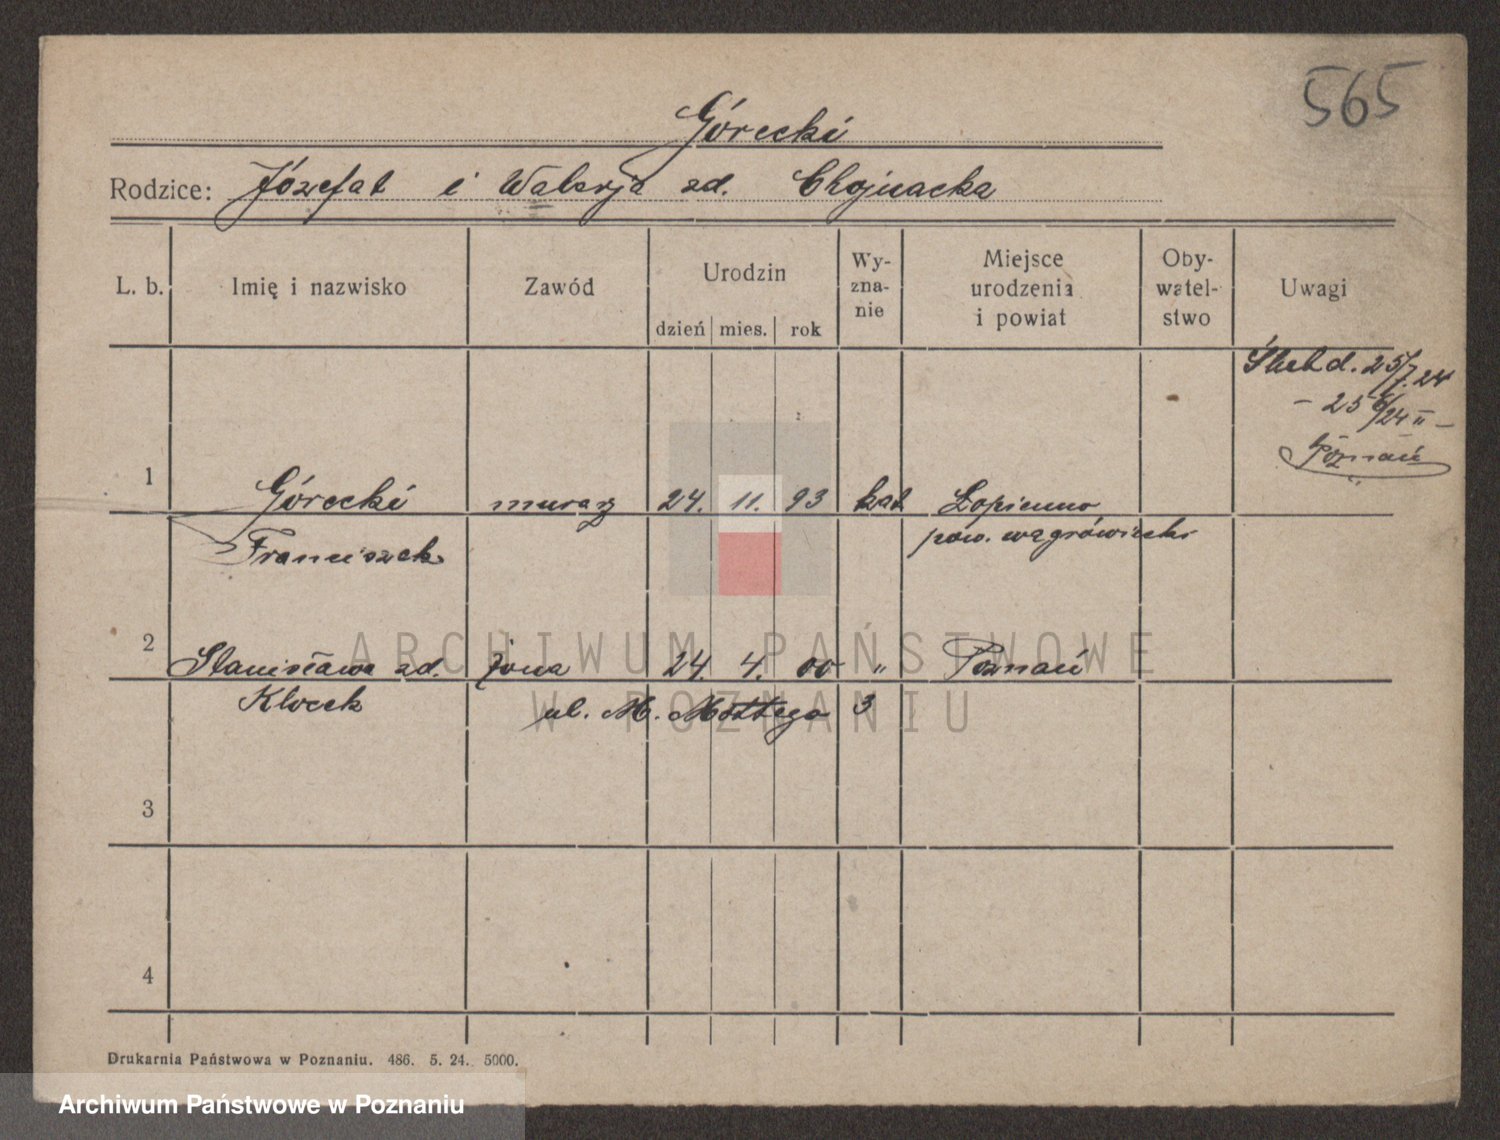 565
Górecki
Rodzice: Józefat i Walerja zd. Chojnacka
L. b. Imię i nazwisko Zawód Urodzin dzień mies. rok Wy-zna-nie Miejsce urodzenia i powiat Oby-watel-stwo Uwagi
d. 25/7.24
- 25 6/24 II -
Poznań
1 Górecki murarz 24. 11. 93 kat Łopienno
Franciszek pow. wągrowiecki
2 Stanisława zd. żona 24. 4. 00 " Poznań
Klocek ul. M. Mottego 3
3
4
Drukarnia Państwowa w Poznaniu. 486. 5. 24. 5000.
ARCHIWUM PAŃSTWOWE
W POZNANIU
Archiwum Państwowe w Poznaniu